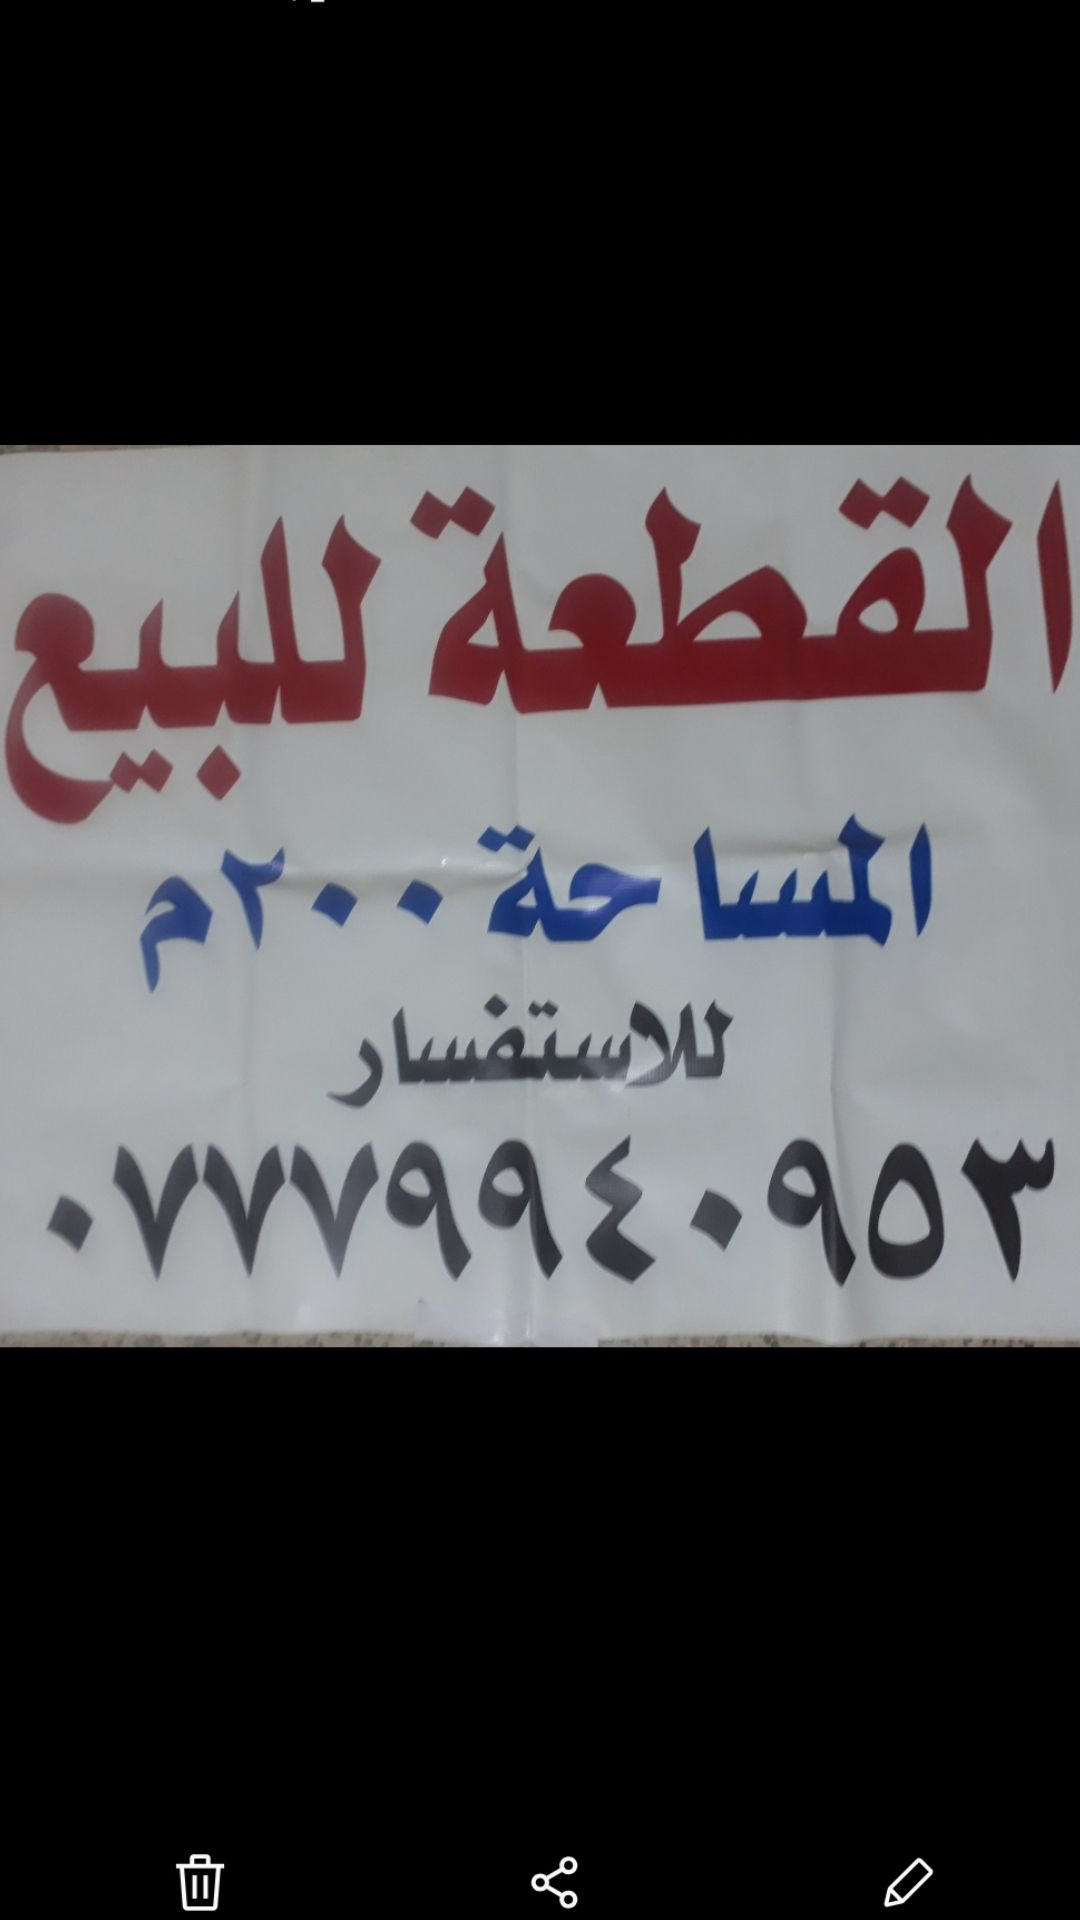 القطعة للبيع
المساحة ٢٠٠م
للاستفسار
٠٧٧٧٩٩٤٠٩٥٣